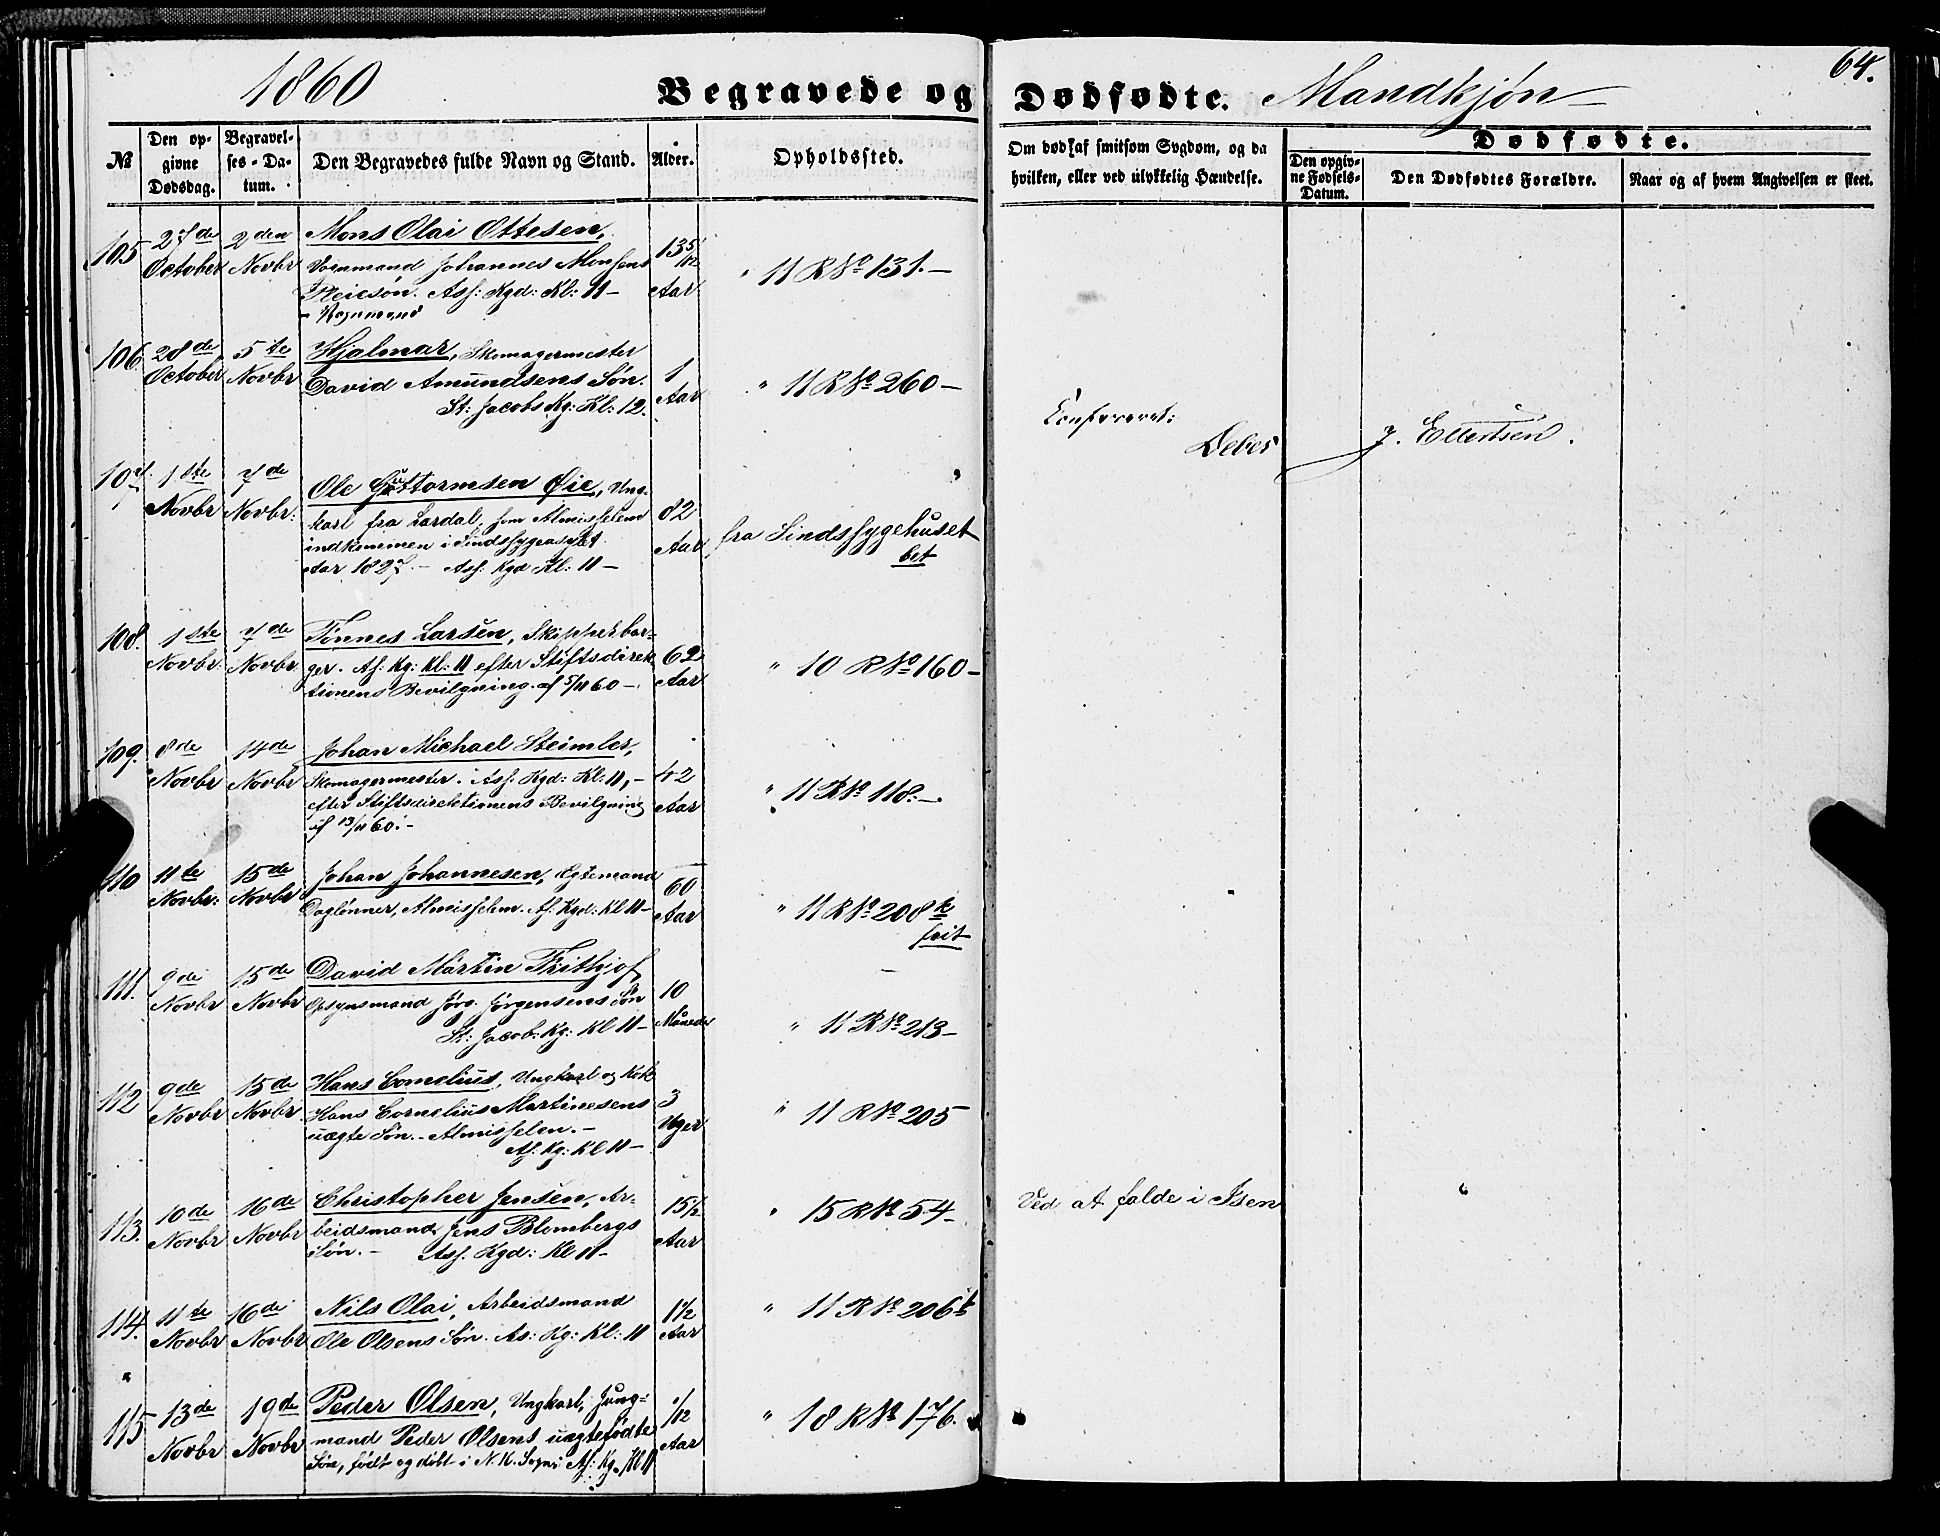 1860
Begravede og Dødfødte. Mandkjøn
64.
№ Den opgivne Dødsdag. Begravelses-Datum. Den Begravedes fulde Navn og Stand. Alder. Opholdssted.
Om død af smitsom Sygdom, og da hvilken, eller ved ulykkelig Hændelse.
Dødfødte.
Den opgivne Fødsels-Datum. Den Dødfødtes Forældre. Naar og af hvem Angivelsen er skeet.
105 27de October 2den Novbr Mons Olai Ottesen, 13 5/12 Aar " 11 R № 131.-
Vognmand Johannes Monsens
Pleiesøn. Ass: Kgd: Kl: 11-
- Vognmand
106. 28de October 5te Novbr Hjalmar, Skomagermester 1 Aar " 11 R № 260-
David Amundsens Søn.
St: Jacobs Kg: Kl: 12.
Confereret:
Debes
J. Ellertsen.
107. 1ste Novbr 7de Novbr: Ole Guttormsen Øie, Ung- 82 Aar fra Sindssygehuset
karl fra Lardal, som Almisselem
indkommen i Sindssygeasylet
Aar 1827.- Ass: Kgd Kl: 11-
bet
108. 1ste Novbr: 7de Novbr Tønnes Larsen, Skipperbor- 62 Aar " 10 R № 160-
ger. As: Kg: Kl: 11 efter Stiftsdirek
tionens Bevilgning af 5/11 60-.
109. 8de Novbr 14de Novbr Johan Michael Steimler, 42 Aar " 11 R № 118.-.
Skomagermester. Ass: Kgd: Kl: 11,-
efter Stiftsdirektionens Bevilgning
af 13/11 60.-
110 11te Novbr: 15de Novbr Johan Johannesen, Egtemand 60 Aar " 11 R № 208 k
Daglønner, Almisselem. As: Kgd: Kl 11-
frit
111. 9de Novbr 15de Novbr David Martin Frithjof, 10 Maaneder " 11 R № 213-
Opsynsmand Jørg. Jørgensens Søn
St: Jacob: Kg: Kl 11-
112 9de Novbr 15de Novbr Hans Cornelius, Ungkarl og Kok 3 Uger " 11 R № 205
Hans Cornelius Martinesens
uægte Søn.- Almisselem.-
As: Kg: Kl 11-
113. 10de Novbr 16de Novbr Christopher Jensen, Ar- 15 1/2 Aar " 15 R № 54- Ved at falde i Isen
beidsmand Jens Blombergs
Søn.- Ass: Kgd: Kl 11-
114. 11te Novbr 16de Novbr Nils Olai, Arbeidsmand 1 1/2 Aar " 11 R № 206 b
Ole Olsens Søn. As: Kg: Kl: 11
115 13de Novbr 19de Novbr Peder Olsen, Ungkarl, Jung- 1/12 Aar " 18 R № 176.
mand Peder Olsens uægtefødte
Søn, født og døbt i N. K. Sogn: As: Kg. Kl 11